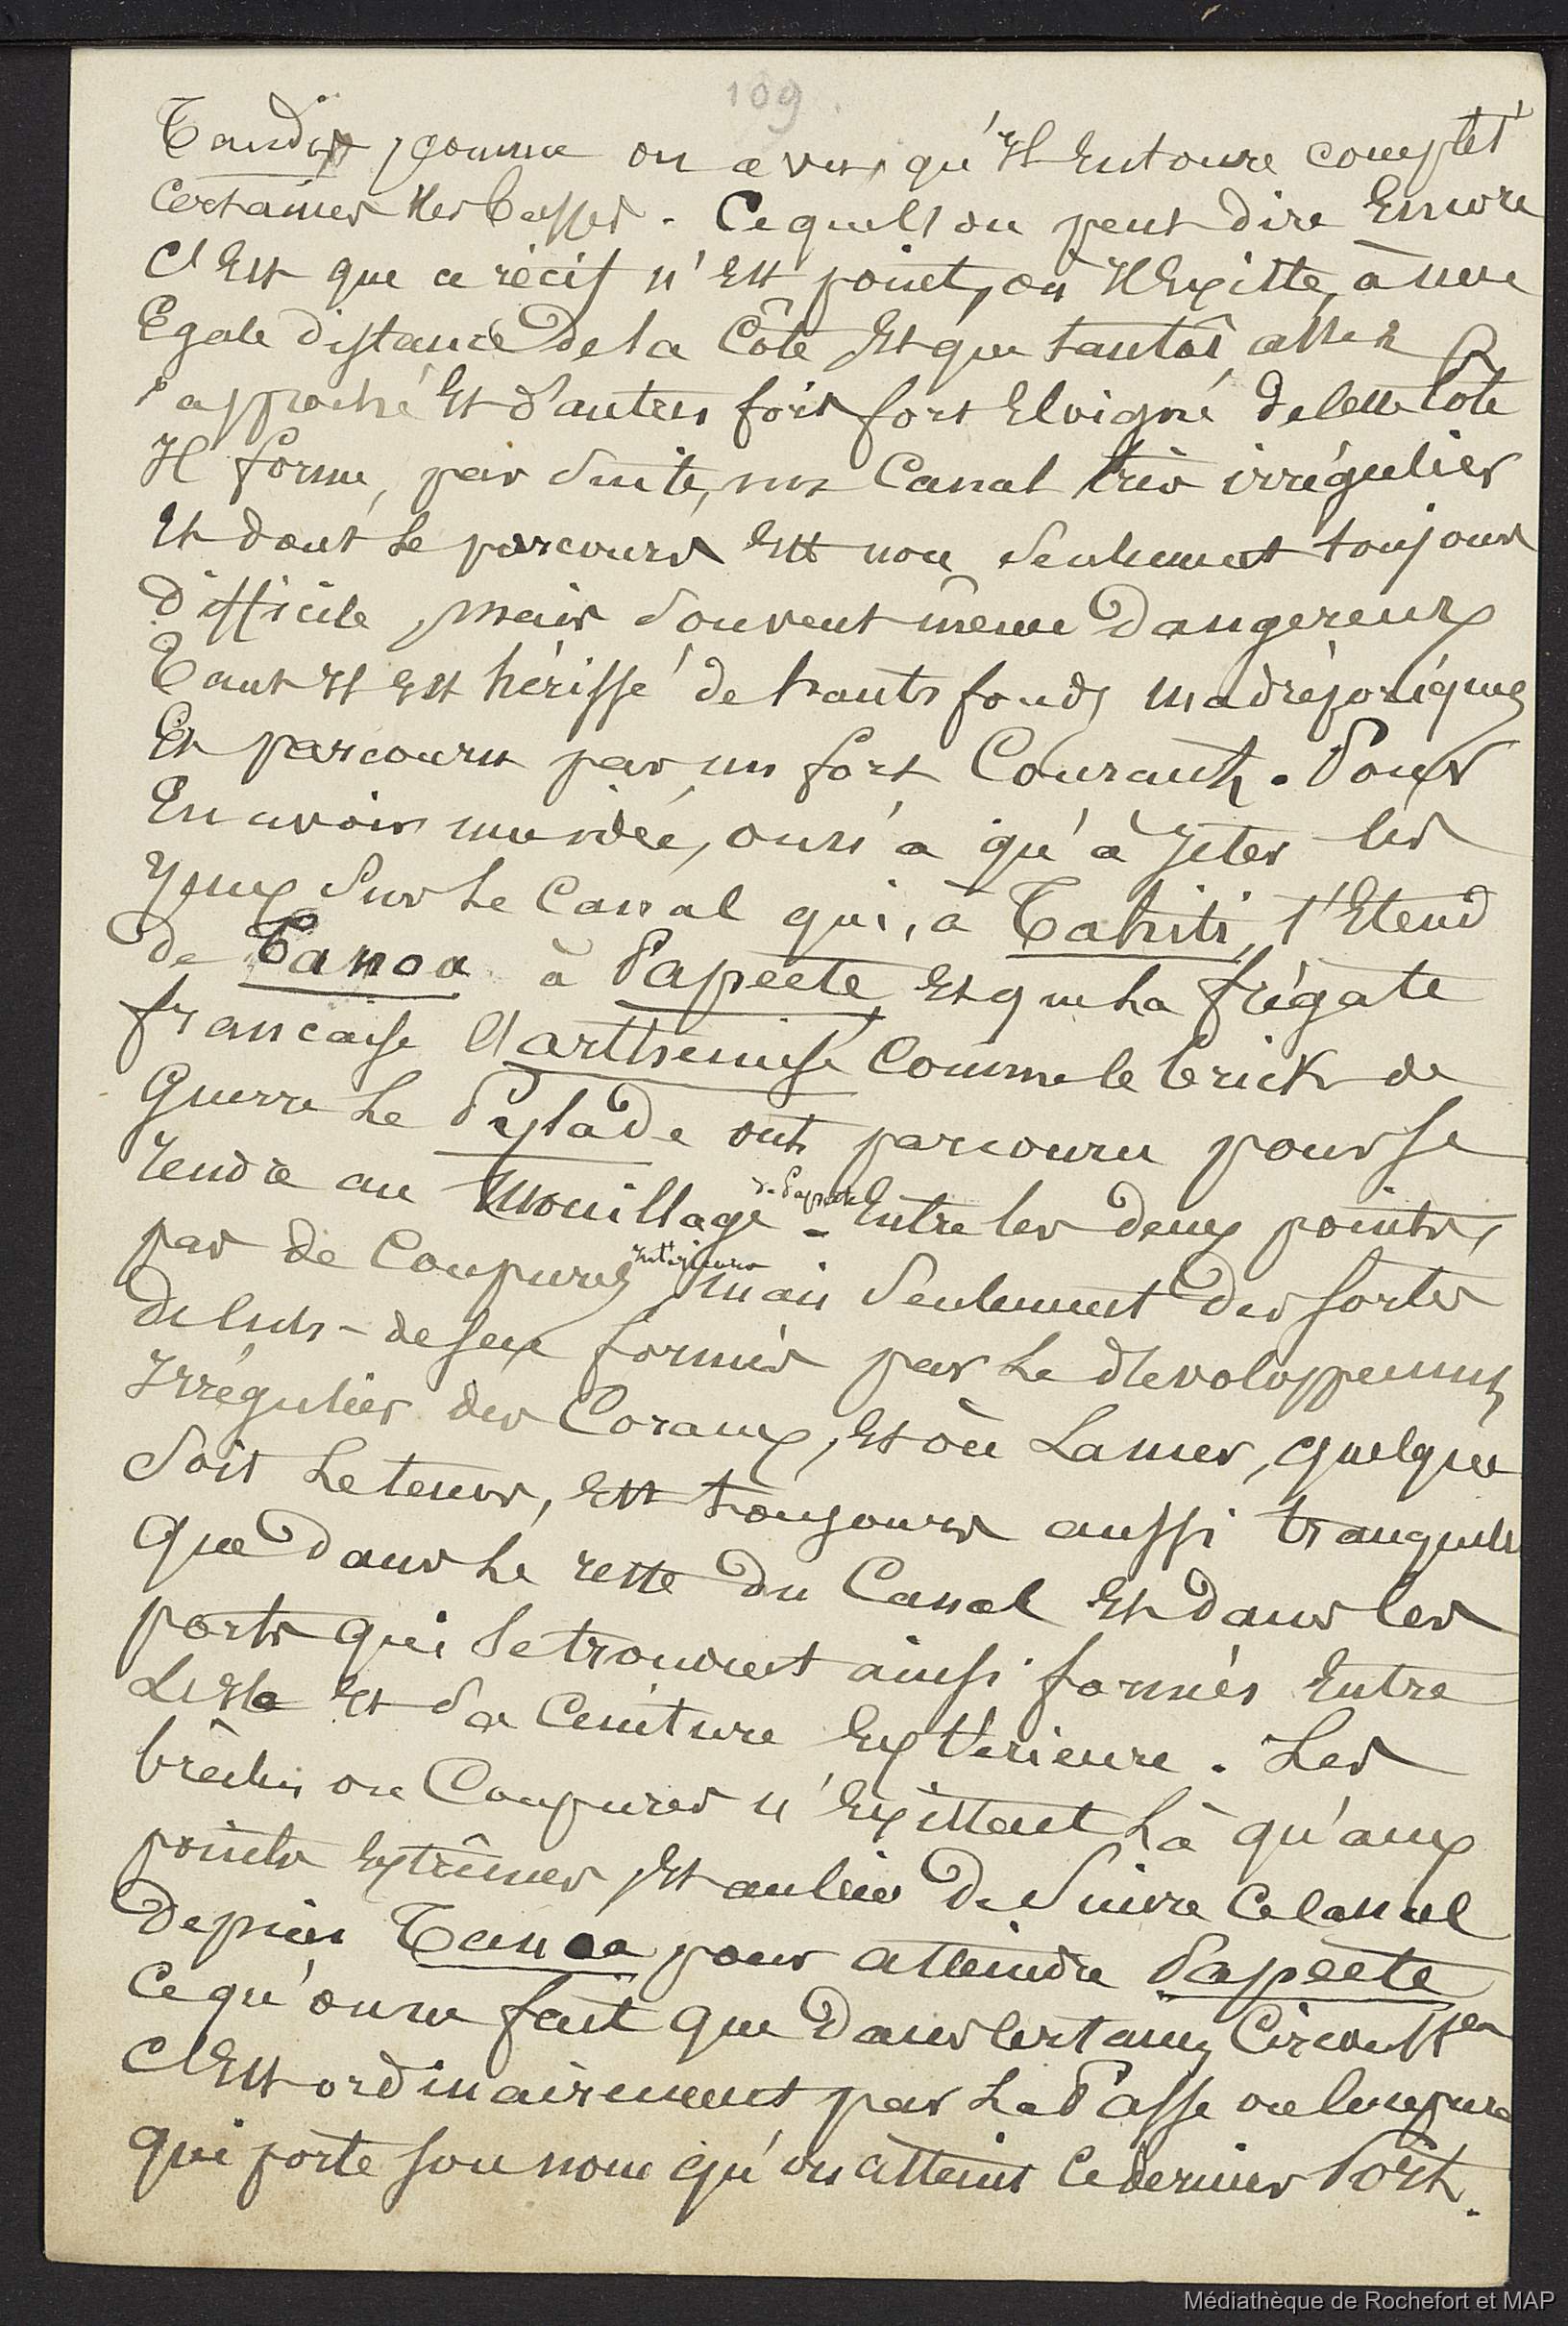 109.
Tandis, comme on a vu, qu'Il Entoure complet^t
Certaines Iles basses. Ce que l'on peut dire Encore
C'Est que ce récif n'Est point, où Il Existe, à une
Egale distance de la Côte Et que tantôt assez
rapproché Et d'autres fois fort Eloigné de cette Côte
Il forme, par Suite, un Canal très irrégulier
Et dont Le parcours Est non Seulement toujours
difficile, mais Souvent même Dangereux
Tant Il Est hérissé de hauts fonds madréporiques
Et parcouru par un fort Courant. Pour
En avoir une idée, on n'a qu'à Jeter les
Yeux Sur Le Canal qui, à Tahiti, s'Etend
de Tanoa à Papeete Et que La frégate
francaise l'arthemise Comme le brick de
Guerre Le Pylade ont parcouru pour Se
rendre au Mouillage de Papeete. Entre les deux points,
pas de Coupures Intérieures mais Seulement des sortes
de culs-de sac formés par Le développement
Irrégulier des Coraux, Et où La mer, quelque
Soit Le tems, Est toujours aussi tranquille
Que dans Le reste du Canal Et dans les
ports qui Se trouvent ainsi formés Entre
L'Ile Et Sa Ceinture Extérieure. Les
brèches ou Coupures n'Existent Là qu'aux
points Extrêmes, Et au lieu de Suivre Ce Canal
Depuis Tanoa pour atteindre Papeete
Ce qu'on ne fait que Dans Certaines Circonst^ces
C'Est ordinairement par La Passe ou Coupure
qui porte son nom qu'on atteint Ce dernier Port.
Médiathèque de Rochefort et MAP